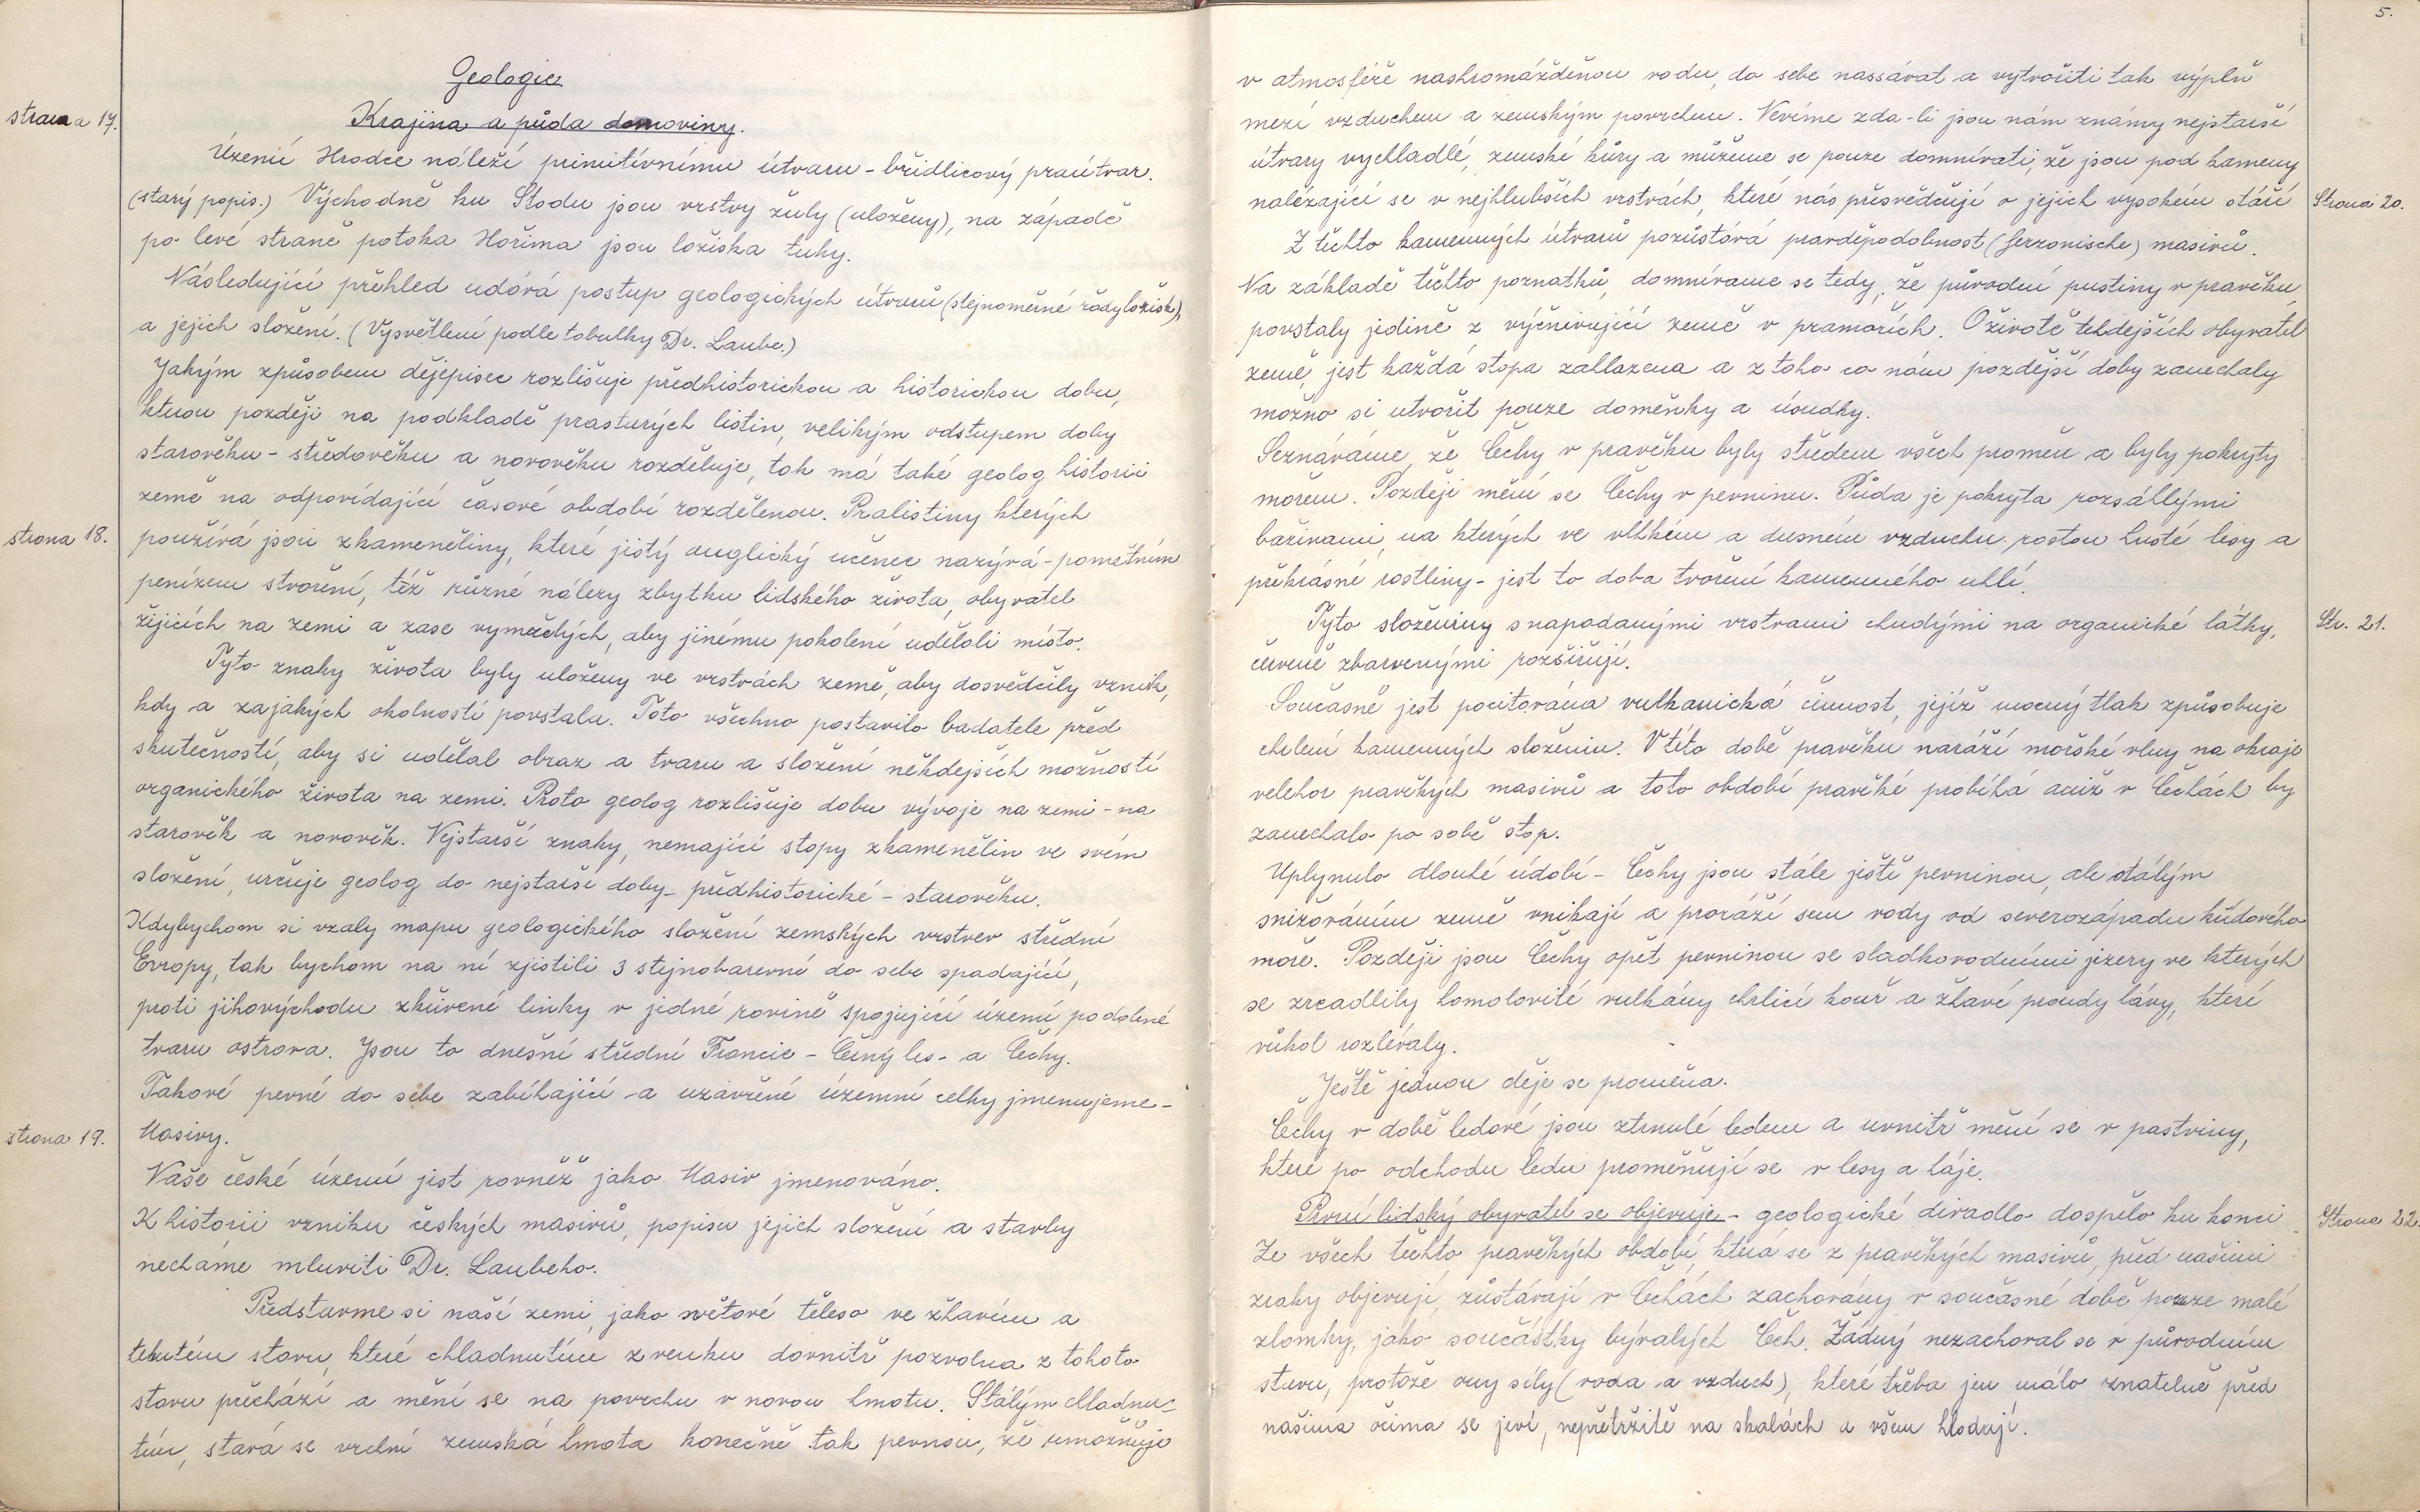 Geologie
strana 17.
Krajina a půda domoviny.
Území Hradce náleží primitívnímu útvaru - břidlicový praútvar.
(starý popis.) Východně ku Stodu jsou vrstvy žuly (uloženy), na západě
po levé straně potoka Hořina jsou ložiska tuhy.
Následující přehled udává postup geologických útvarů (stejnoměrné řady ložisk),
a jejich složení. (Vysvětlení podle tabulky Dr. Laube.)
Jakým způsobem dějepisec rozlišuje předhistorickou a historickou dobu,
kterou později na podkladě prastarých listin, velikým odstupem doby
starověku - středověku a novověku rozděluje, tak má také geolog historii
země na odpovídající časové období rozdělenou. Pralistiny kterých
strona 18.
používá jsou zkameněliny, které jistý anglický učenec nazývá - pamětním
penízem stvoření, též různé nálezy zbytku lidského života, obyvatel
žijicích na zemi a zase vymřelých, aby jinému pokolení udělali místo.
Tyto znaky života byly uloženy ve vrstvách země, aby dosvědčily vznik,
kdy a zajakých okolností povstala. Toto všechno postavilo badatele před
skutečností, aby si udělal obraz a tvaru a složení někdejších možností
organického života na zemi. Proto geolog rozlišuje dobu vývoje na zemi - na
starověk a novověk. Nejstarší znaky, nemající stopy zkamenělin ve svém
složení, určuje geolog do nejstarší doby - předhistorické - starověku.
Kdybychom si vzaly mapu geologického složení zemských vrstev střední
Evropy, tak bychom na ní zjistili 3 stejnobarevné do sebe spadající,
proti jihovýchodu zkřivené linky v jedné rovině spojující území podobné
tvaru ostrova. Jsou to dnešní střední Francie - Černý les - a Čechy.
Takové pevné do sebe zabíhající a uzavřené územní celky jmenujeme -
strona 19.
Masivy.
Naše české území jest rovněž jako Masiv jmenováno.
K historii vzniku českých masivů, popisu jejich složení a stavby
necháme mluviti Dr. Laubeho.
Představme si naší zemi, jako světové těleso ve žhavém a
tekutém stavu, které chladnutím z venku dovnitř pozvolna z tohoto
stavu přechází a mění se na povrchu v novou hmotu. Stálým chladnu-
tím, stává se vrchní zemská hmota konečně tak pevnou, že umožňuje
5.
v atmosféře nashromážděnou vodu, do sebe nassávat a vytvořiti tak výplň
mezi vzduchem a zemským povrchem. Nevíme zda-li jsou nám známy nejstarší
útvary vychladlé, zemské kůry a můžeme se pouze domnívati, že jsou pod kameny
nalézající se v nejhlubších vrstvách, které nás přesvědčují o jejich vysokém stáří
Strona 20.
Z těchto kamenných útvarů pozůstává pravděpodobnost (ferzonische) masivů.
Na základě těchto poznatků, domníváme se tedy, že původní pustiny v pravěku,
povstaly jedině z vyčnivující země v pramořích. O životě tehdejších obyvatel
země, jest každá stopa zahlazena a z toho co nám pozdější doby zanechaly
možno si utvořit pouze doměnky a úsudky.
Seznáváme, že Čechy v pravěku byly středem všech proměn a byly pokryty
mořem. Později mění se Čechy v pevninu. Půda je pokryta rozsáhlými
bažinami, na kterých ve vlhkém a dusném vzduchu rostou husté lesy a
překrásné rostliny - jest to doba tvoření kamenného uhlí.
Tyto složeniny s napadanými vrstvami chudými na organické látky,
Str. 21.
červeně zbarvenými rozšiřují.
Současně jest pocitována vulkanická činnost, jejíž mocný tlak způsobuje
chlení kamenných složenin. V této době pravěku naráží mořské vlny na okraje
velehor pravěkých masivů a toto období pravěké probíhá aniž v Čechách by
zanechalo po sobě stop.
Uplynulo dlouhé údobí - Čechy jsou stále ještě pevninou, ale stálým
snižováním země vnikají a proráží sem vody od severozápadu křídového
moře. Později jsou Čechy opět pevninou se sladkovodními jezery ve kterých
se zrcadlily homolovité vulkány chrlící kouř a žhavé proudy lávy, které
vůkol rozlévaly.
Ještě jednou děje se proměna.
Čechy v době ledové jsou ztrnulé ledem a uvnitř mění se v pastviny,
které po odchodu ledu proměňují se v lesy a háje.
První lidský obyvatel se objevuje - geologické divadlo dospělo ku konci.
Strona 22.
Ze všech těchto pravěkých období, která se z pravěkých masivů, před našimi
zraky objevují, zůstávají v Čechách zachovány v současné době pouze malé
zlomky, jako součástky bývalých Čech. Žádný nezachoval se v původním
stavu, protože ony síly (voda a vzduch), které třeba jen málo znatelně před
našima očima se jeví, nepřetržitě na skalách a všem hlodají.